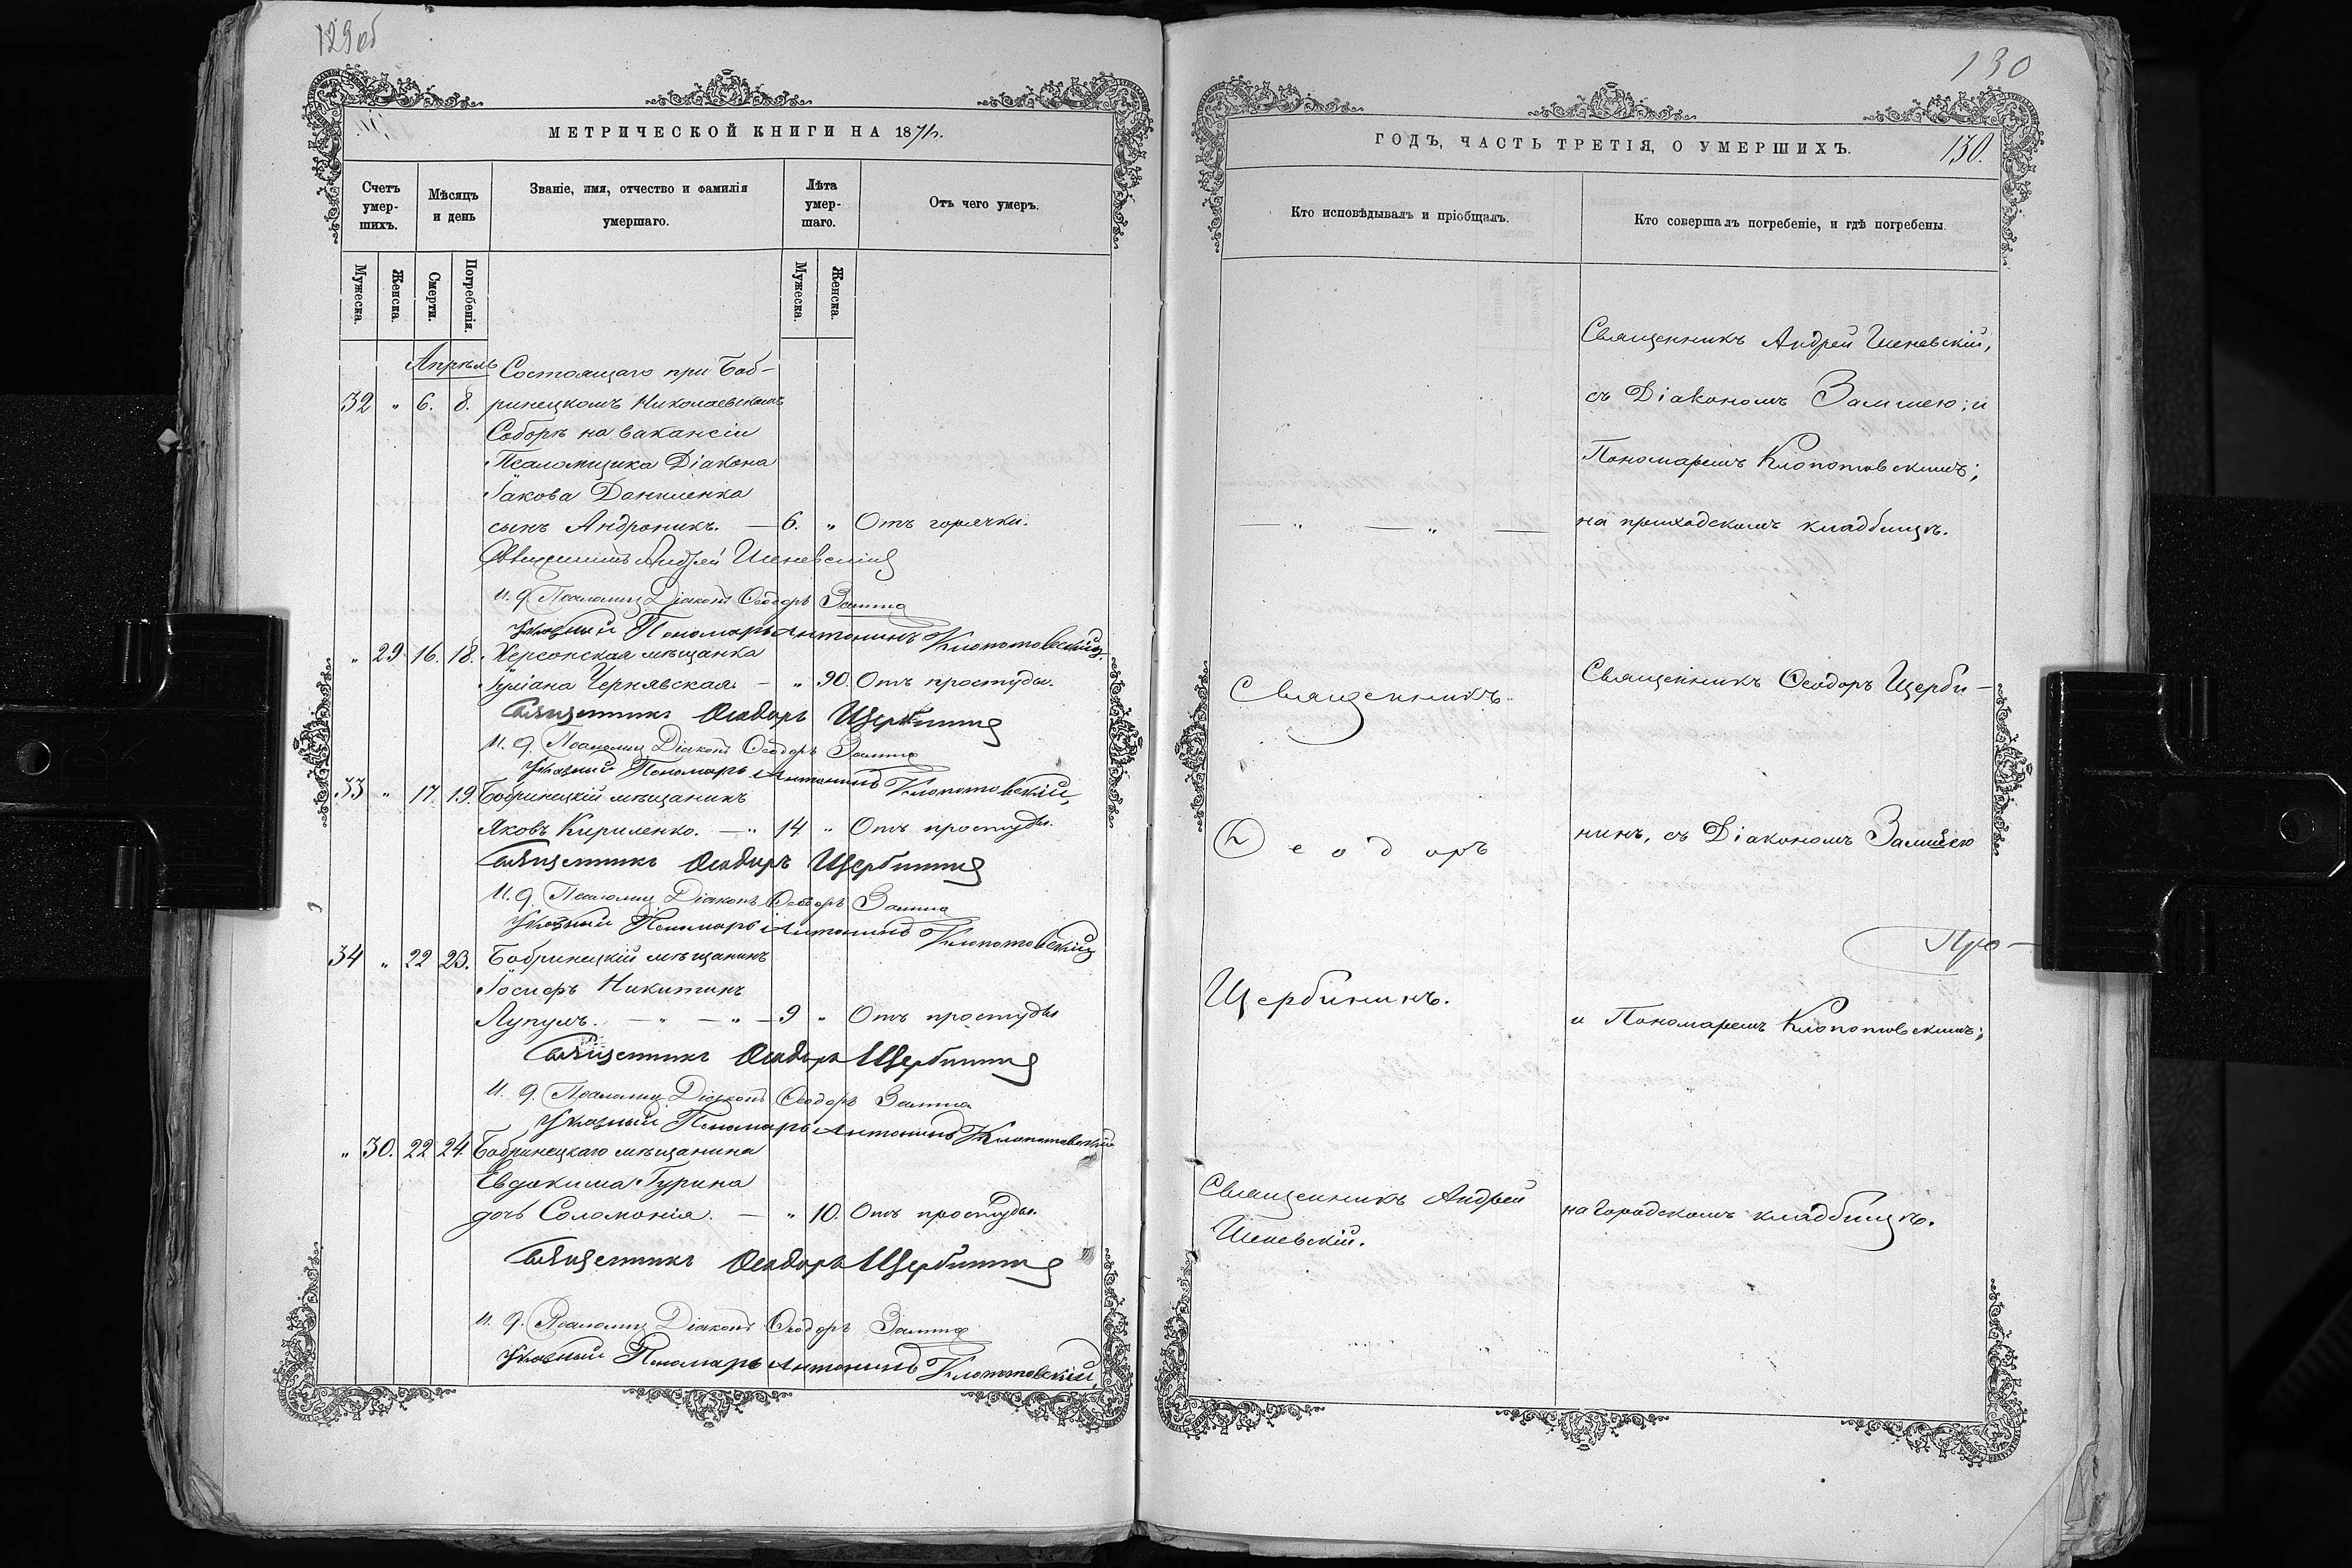 129об
МЕТРИЧЕСКОЙ КНИГИ НА 1871
Счетъ умер-шихъ.
Мѣсяцъ и день
Званіе, имя, отчество и фамилія умершаго.
Лѣта умер-шаго.
Отъ чего умеръ.
Мужеска.
Женска.
Смерти.
Погребенія.
Мужеска.
Женска.
Апрѣль
Состоящаго при Боб-
32 " 6. 8. ринецкомъ Николаевскомъ
Соборѣ на вакансіи
Псаломщика Діакона
Іакова Даниленка
сынъ Андроникъ. — 6. " Отъ горячки.
Священникъ Андрей Шеневскій
И. д. Псаломщ. Діаконъ Ѳеодоръ
Указный Пономарь Антонинъ Клопотовскій
" 29 16. 18. Херсонская мѣщанка
Іуліана Чернявская. — " 90. Отъ простуды.
Священникъ Ѳеодоръ Щербининъ
И. д. Псаломщ. Діаконъ Ѳеодоръ
Указный Пономарь Антонинъ Клопотовскій,
33 " 17 19. Бобринецкій мѣщанинъ
Яковъ Кириленко. — " 14 " Отъ простуды.
Священникъ Ѳеодоръ Щербининъ
И. д. Псаломщ. Діаконъ Ѳеодоръ
Указный Пономарь Антонинъ Клопотовскій
34 " 22 23. Бобринецкій мѣщанинъ
Іосифъ Никитинъ
Лупулъ. — " — " — 9 " Отъ простуды
Священникъ Ѳеодоръ Щербининъ
И. д. Псаломщ. Діаконъ Ѳеодоръ
Указный Пономарь Антонинъ Клопотовскій
" 30. 22 24. Бобринецкаго мѣщанина
Евдокима Гурина
дочь Соломонія. — " 10. Отъ простуды.
Священникъ Ѳеодоръ Щербининъ
И. д. Псаломщ. Діаконъ Ѳеодоръ
Указный Пономарь Антонинъ Клопотовскій,
130
ГОДЪ, ЧАСТЬ ТРЕТІЯ, О УМЕРШИХЪ.
130.
Кто исповѣдывалъ и пріобщалъ.
Кто совершалъ погребеніе, и гдѣ погребены.
Священникъ Андрей Шеневскій,
съ Діакономъ; и
Пономаремъ Клопотовскимъ;
— " — " — на приходскомъ кладбищѣ.
Священникъ
Священникъ Ѳеодоръ Щерби-
Ѳеодоръ
нинъ, съ Діакономъ
Щербининъ.
и Пономаремъ Клопотовскимъ;
Священникъ Андрей
Шеневскій.
на городскомъ кладбищѣ.